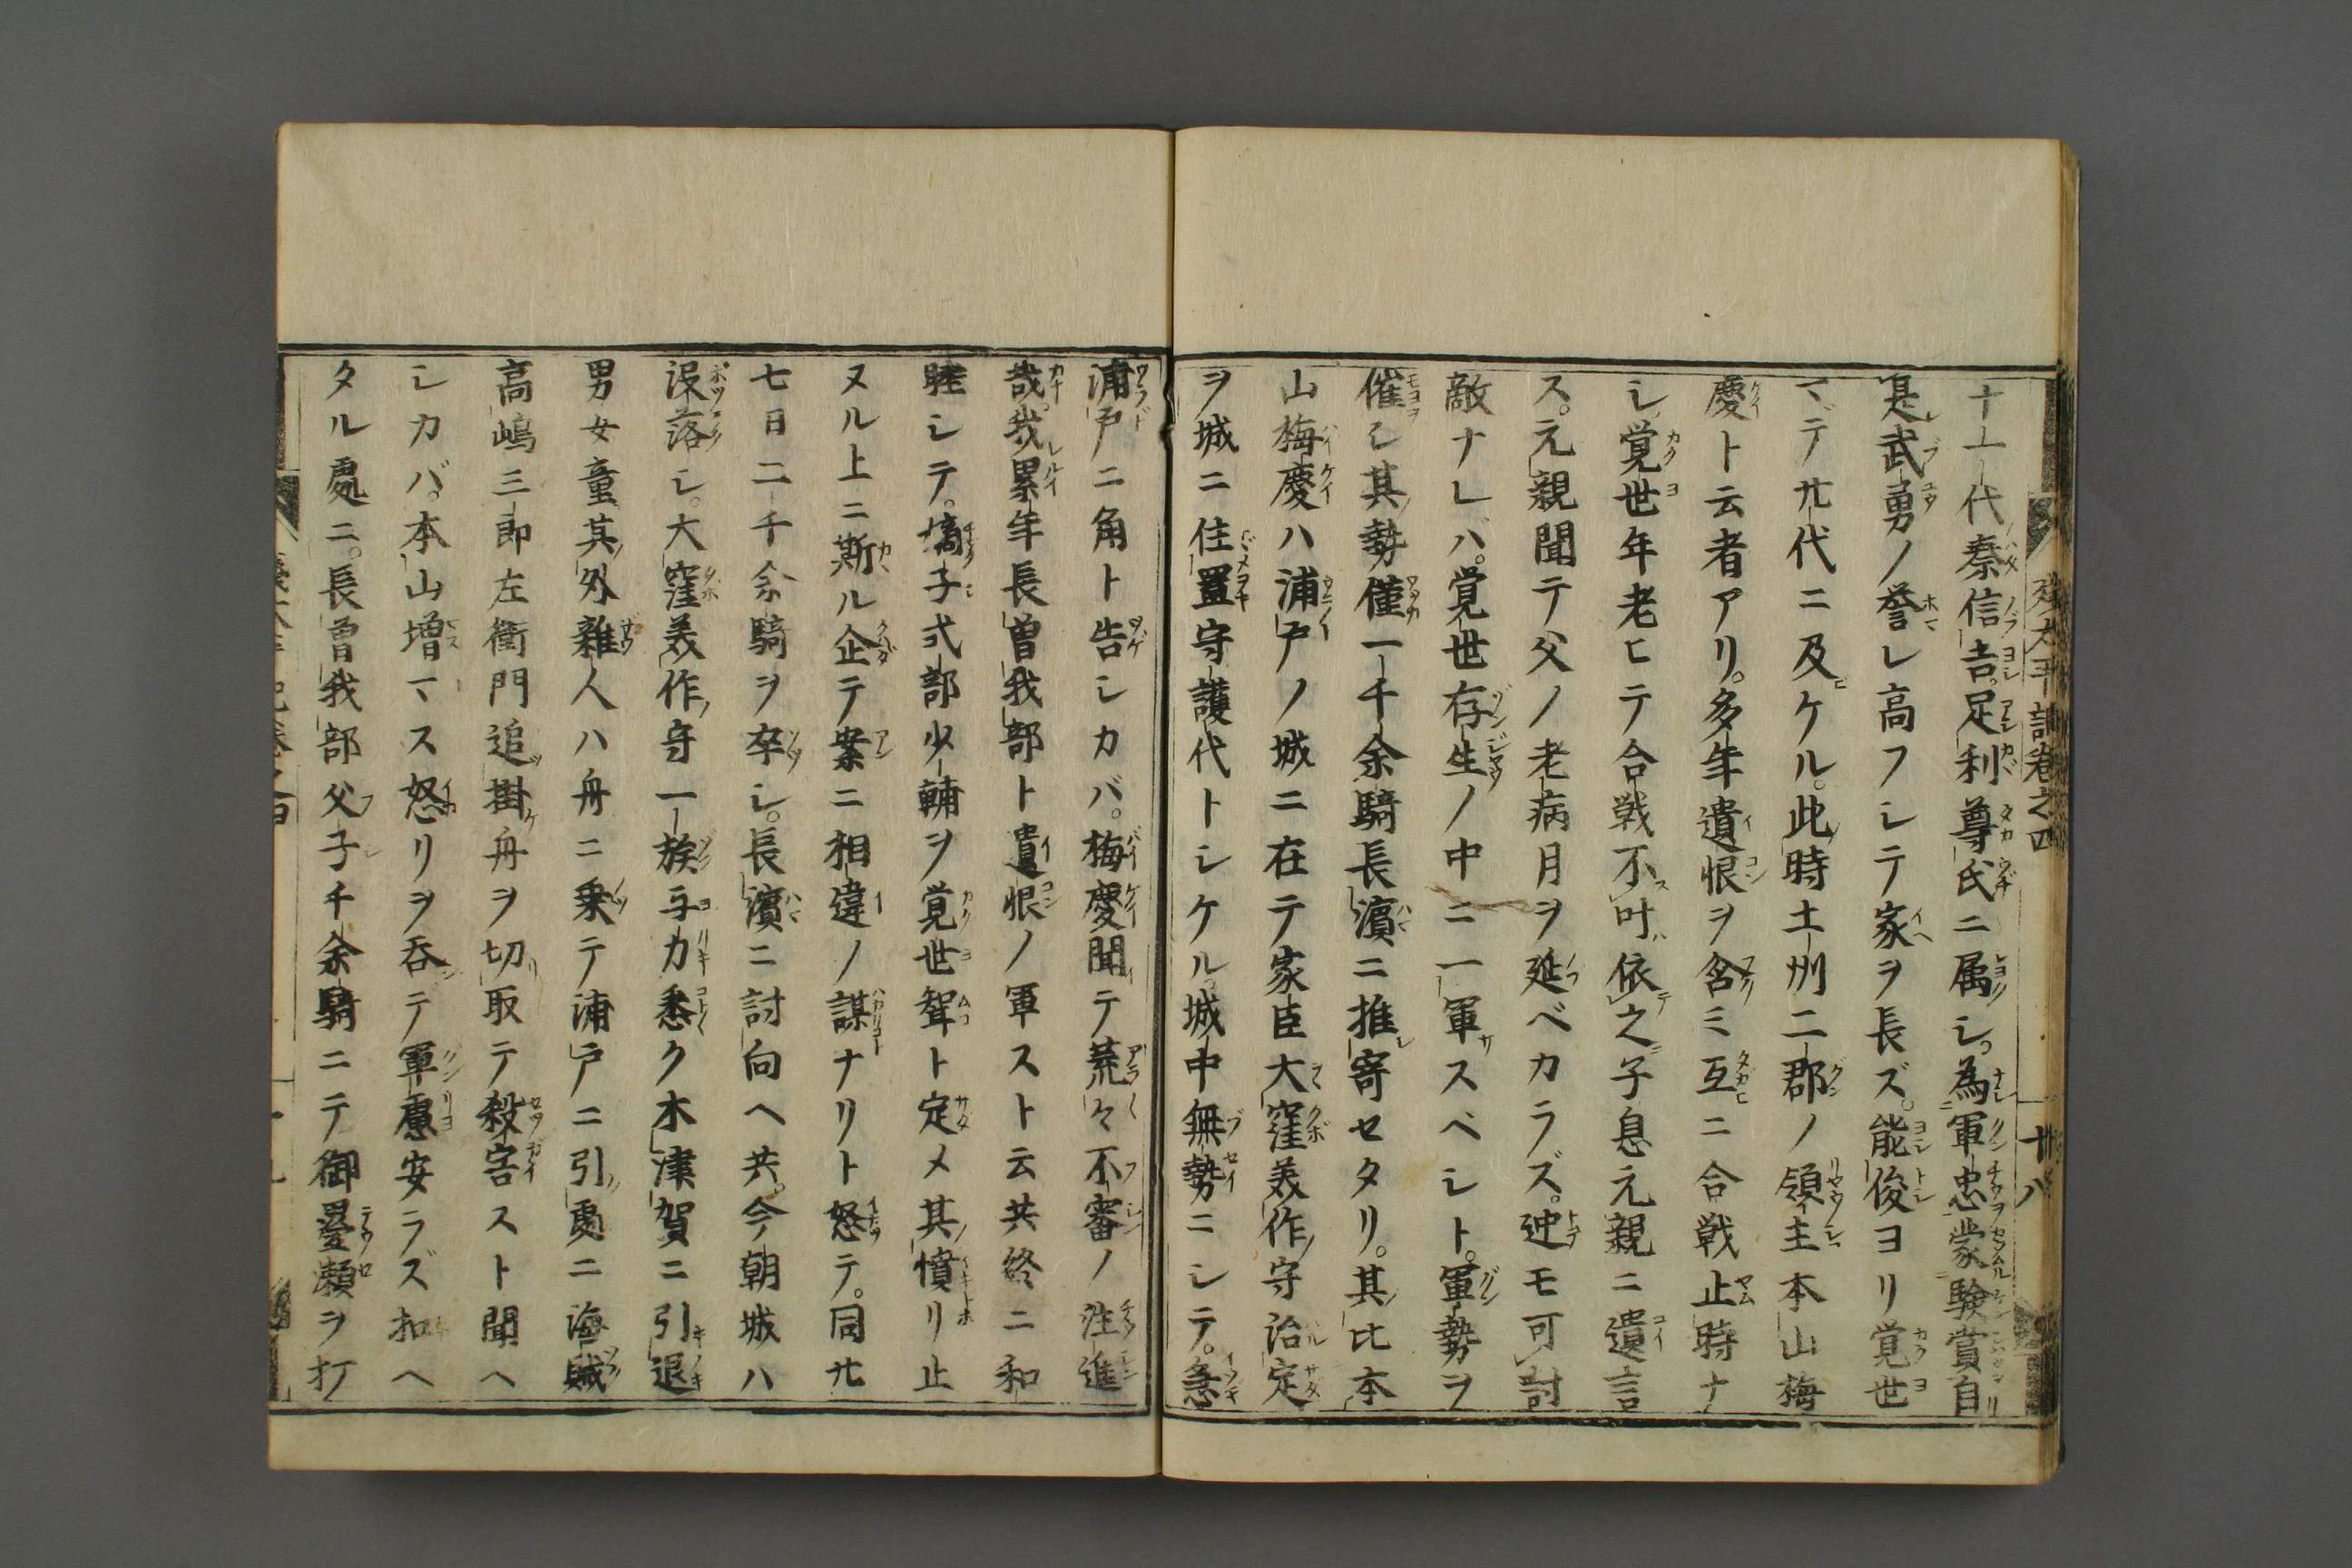 十一代秦信吉。足利尊氏ニ属シ。為軍忠蒙験賞自
是武勇ノ誉レ高フシテ家ヲ長ズ。能俊ヨリ覚世
マデ廿代ニ及ケル。此時土州二郡ノ領主本山梅
慶ト云者アリ。多年遺恨ヲ含ミ互ニ合戦止時ナ
シ。覚世年老ヒテ合戦不叶依之子息元親ニ遺言
ス。元親聞テ父ノ老病月ヲ延ベカラズ。迚モ可討
敵ナレバ。覚世存生ノ中ニ一軍スベシト。軍勢ヲ
催シ其勢僅一千余騎長濵ニ推寄セタリ。其比本
山梅慶ハ浦戸ノ城ニ在テ家臣大窪美作守治定
ヲ城ニ住置守護代トシケル。城中無勢ニシテ。急
浦戸ニ角ト告シカバ。梅慶聞テ荒々不審ノ注進
哉。我累年長曽我部ト遺恨ノ軍スト云共終ニ和
睦シテ。嫡子式部少輔ヲ覚世聟ト定メ其憤リ止
ヌル上ニ斯ル企テ案ニ相違ノ謀ナリト怒テ。同廿
七日二千余騎ヲ卒シ。長濵ニ討向ヘ共。今朝城ハ
没落シ。大窪美作守一族与力悉ク木津賀ニ引退
男女童其外雑人ハ舟ニ乗テ浦戸ニ引處ニ海賊
高嶋三郎左衛門追掛舟ヲ切取テ殺害スト聞ヘ
シカバ。本山増マス怒リヲ呑テ軍慮安ラズ扣ヘ
タル處ニ。長曽我部父子千余騎ニテ御畳瀬ヲ打